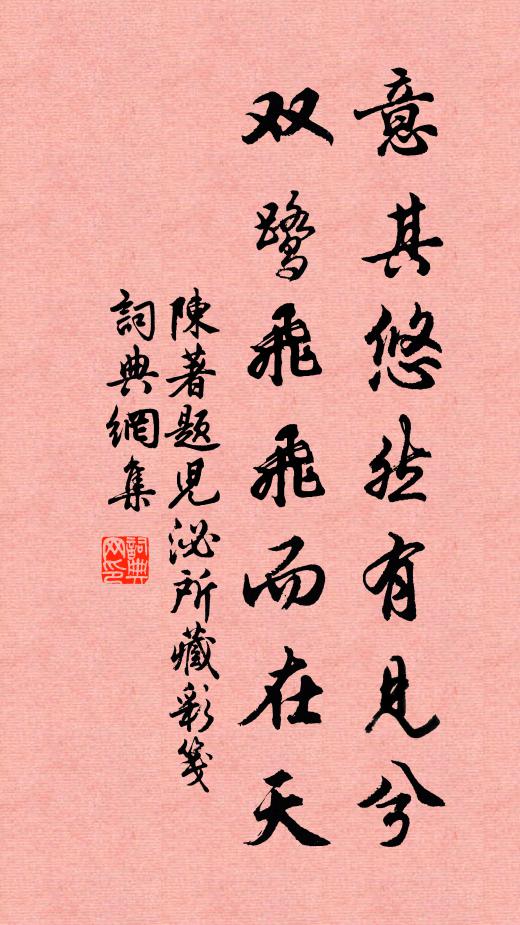 意其悠然有见兮
双鹭飞飞而在天
陳著題児泌所藏彩箋
詞典網集
詞典网印